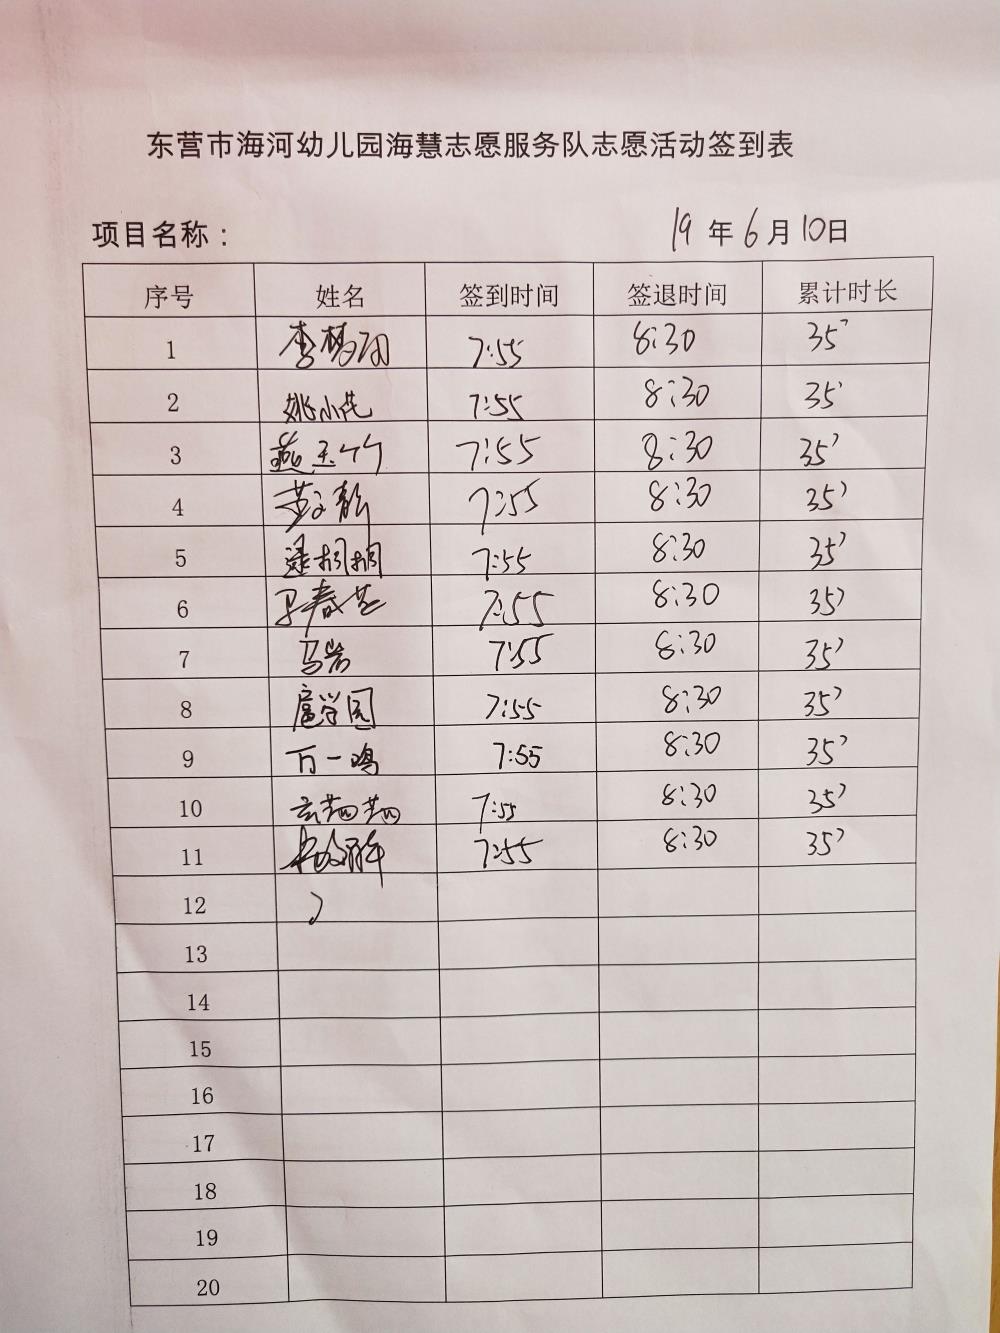 东营市海河幼儿园海慧志愿服务队志愿活动签到表
项目名称： 19年6月10日
序号 姓名 签到时间 签退时间 累计时长
1 7:55 8:30 35'
2 姚小花 7:55 8:30 35'
3 燕玉竹 7:55 8:30 35'
4 7:55 8:30 35'
5 逯桐桐 7:55 8:30 35'
6 卫春芝 7:55 8:30 35'
7 马岩 7:55 8:30 35'
8 扈学园 7:55 8:30 35'
9 万一鸣 7:55 8:30 35'
10 7:55 8:30 35'
11 7:55 8:30 35'
12
13
14
15
16
17
18
19
20